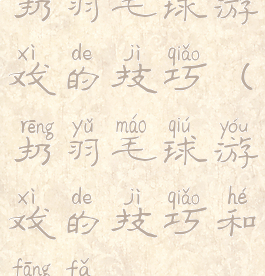 扔羽毛球游
xì de jì qiǎo
戏的技巧（
rēng yǔ máo qiú yóu
扔羽毛球游
xì de jì qiǎo hé
戏的技巧和
fāng fǎ